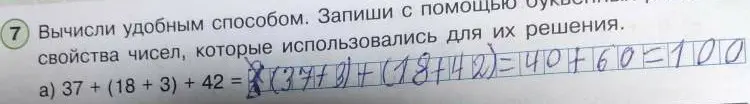 7 Вычисли удобным способом. Запиши с помощью
свойства чисел, которые использовались для их решения.
а) 37 + (18 + 3) + 42 = (37+3)+(18+42)=40+60=100